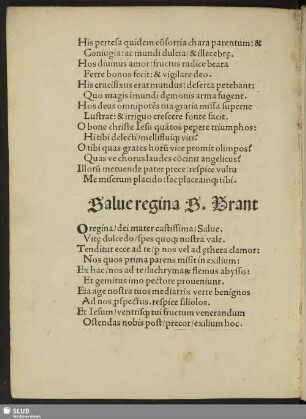 His pertesa quidem cõsortia chara parentum: &
Coniugia: ac mundi dulcia/ & illecebrę.
Hos diuinus amor/ fructus radice beata
Ferre bonos fecit: & vigilare deo.
His crucifixus erat mundus: deserta petebant:
Quo magis immũdi dęmonis arma fugent.
Hos deus omnipotẽs tua gratia missa superne
Lustrat: & irriguo crescere fonte facit.
O bone christe Iesu quãtos pepere triumphos:
Hi tibi delecti/ mellifluiqȝ viri?
O tibi quas grates horũ vice promit olimpos?
Quas ve chorus laudes cõcinit angelicus?
Illorũ metuende pater prece/ respice vultu
Me miserum placido: fac placeamqȝ tibi.
Salue regina S. Brant
O regina/ dei mater castissima/ Salue.
Vitę dulcedo/ spes quoqȝ nostra vale.
Tenditur ecce ad te/ p nos vel ad ęthera clamor:
Nos quos prima parens misit in exilium:
Ex hac/ nos ad te/ lachrymę & flemus abysso:
Et gemitus imo pectore proueniunt.
Eia age nostra tuos mediatrix verte benignos
Ad nos pspectus. respice filiolos.
Et Iesum/ ventrisqȝ tui fructum venerandum
Ostendas nobis post/ precor/ exilium hoc.
SLUB